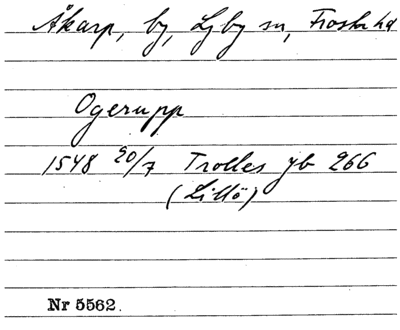 Åkarp, by, Ljby sn, Frosta hd
Ogerupp
1548 20/7 Trolles jb 266
(Lillö)
Nr 5562.